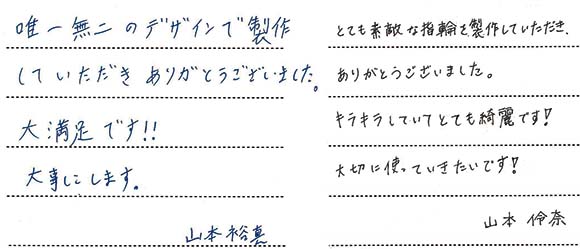 唯一無二のデザインで製作
していただきありがとうございました。
大満足です!!
大事にします。
山本裕真
とても素敵な指輪を製作していただき、
ありがとうございました。
キラキラしていてとても綺麗です!
大切に使っていきたいです!
山本 伶奈